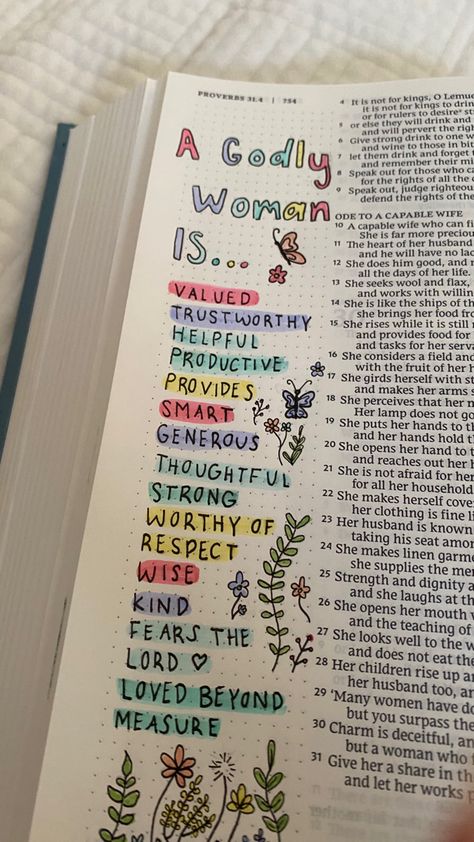 PROVERBS 31:4 | 754
A Godly
Woman
Is...
VALUED
TRUSTWORTHY
HELPFUL
PRODUCTIVE
PROVIDES
SMART
GENEROUS
THOUGHTFUL
STRONG
WORTHY OF
RESPECT
WISE
KIND
FEARS THE
LORD ♡
LOVED BEYOND
MEASURE
4 It is not for kings, O Lemue
it is not for kings to drin
or for rulers to desire
5 or else they will drink and
and will pervert the righ
6 Give strong drink to one w
and wine to those in bit
7 let them drink and forget t
and remember their mi
8 Speak out for those who ca
for the rights of all the
9 Speak out, judge righteou
defend the rights of the
ODE TO A CAPABLE WIFE
10 A capable wife who can fi
She is far more preciou
11 The heart of her husband
and he will have no lac
12 She does him good, and n
all the days of her life.
13 She seeks wool and flax,
and works with willin
14 She is like the ships of th
she brings her food fro
15 She rises while it is still
and provides food for
and tasks for her serva
16 She considers a field and
with the fruit of her h
17 She girds herself with s
and makes her arms s
18 She perceives that her m
Her lamp does not g
19 She puts her hands to th
and her hands hold t
20 She opens her hand to t
and reaches out her h
21 She is not afraid for her
for all her household
22 She makes herself cove
her clothing is fine li
23 Her husband is known
taking his seat amon
24 She makes linen garme
she supplies the mer
25 Strength and dignity a
and she laughs at the
26 She opens her mouth w
and the teaching of
27 She looks well to the w
and does not eat the
28 Her children rise up an
her husband too, an
29 'Many women have do
but you surpass the
30 Charm is deceitful, an
but a woman who f
31 Give her a share in th
and let her works p